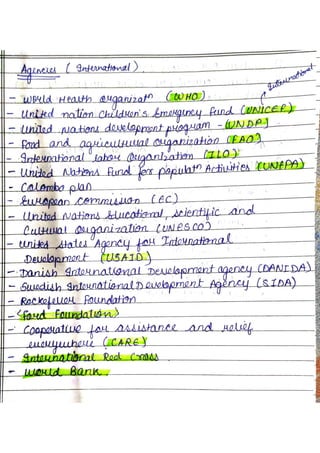 Agencies (International)
International
- World Health Organizatn (WHO).
- United nation Children's Emergency Fund (UNICEF)
- United Nations development program - (UNDP)
- Food and agricultural organization (FAO)
- International labor Organization (ILO)
- United Nations Fund for populatn Activities (UNFPA)
- Colombo plan
- European commission (EC)
- United Nations Educational, scientific and
Cultural Organization (UNESCO)
- unites states Agency for International
Development (USAID)
- Danish International Development agency (DANIDA)
- Swedish International Development Agency (SIDA)
- Rockefeller Foundation
- <Ford Foundation>
- Cooperative for assistance and relief
everywhere (CARE)
- International Red Cross.
- World Bank.